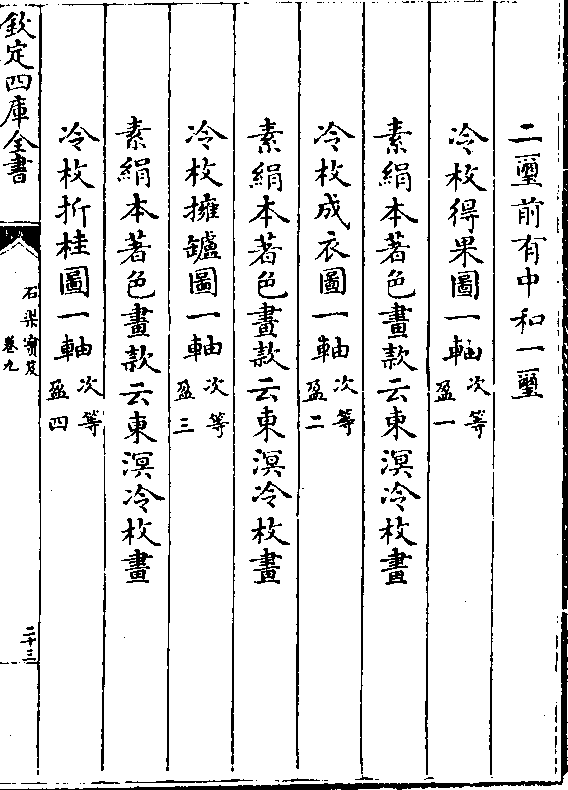 二璽前有中和一璽
冷枚得果圖一軸次等盈一
素絹本著色畫款云東溟冷枚畫
冷枚成衣圖一軸次等盈二
素絹本著色畫款云東溟冷枚畫
冷枚擁罏圖一軸次等盈三
素絹本著色畫款云東溟冷枚畫
冷枚折桂圖一軸次等盈四
欽定四庫全書
石渠寳笈
卷九
二十三